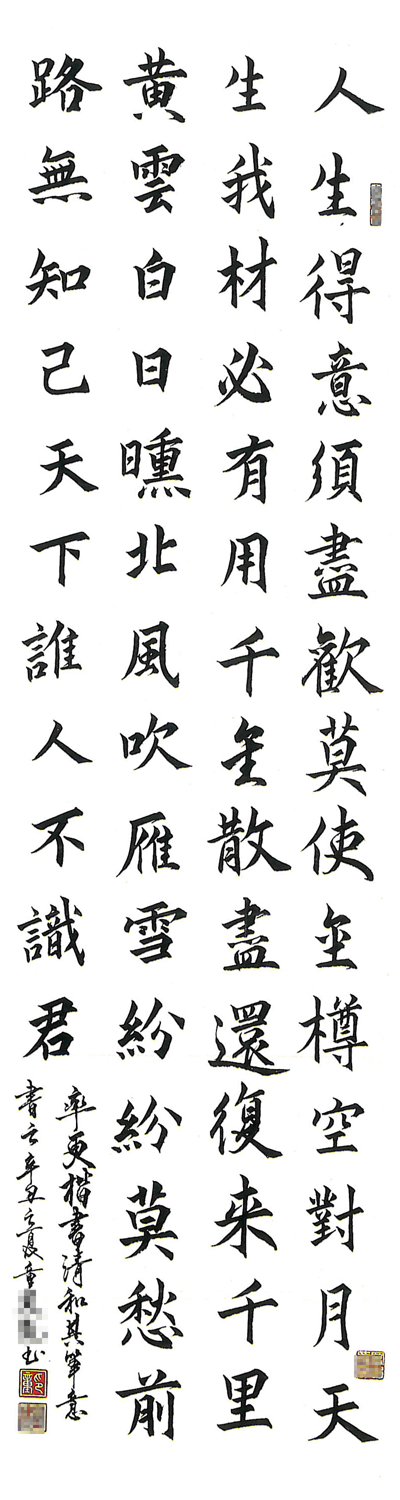 人生得意須盡歡莫使金樽空對月天
生我材必有用千金散盡還復来千里
黄雲白日曛北風吹雁雪紛紛莫愁前
路無知己天下誰人不識君
率更楷書清和其筆意
書之辛丑之夏童书